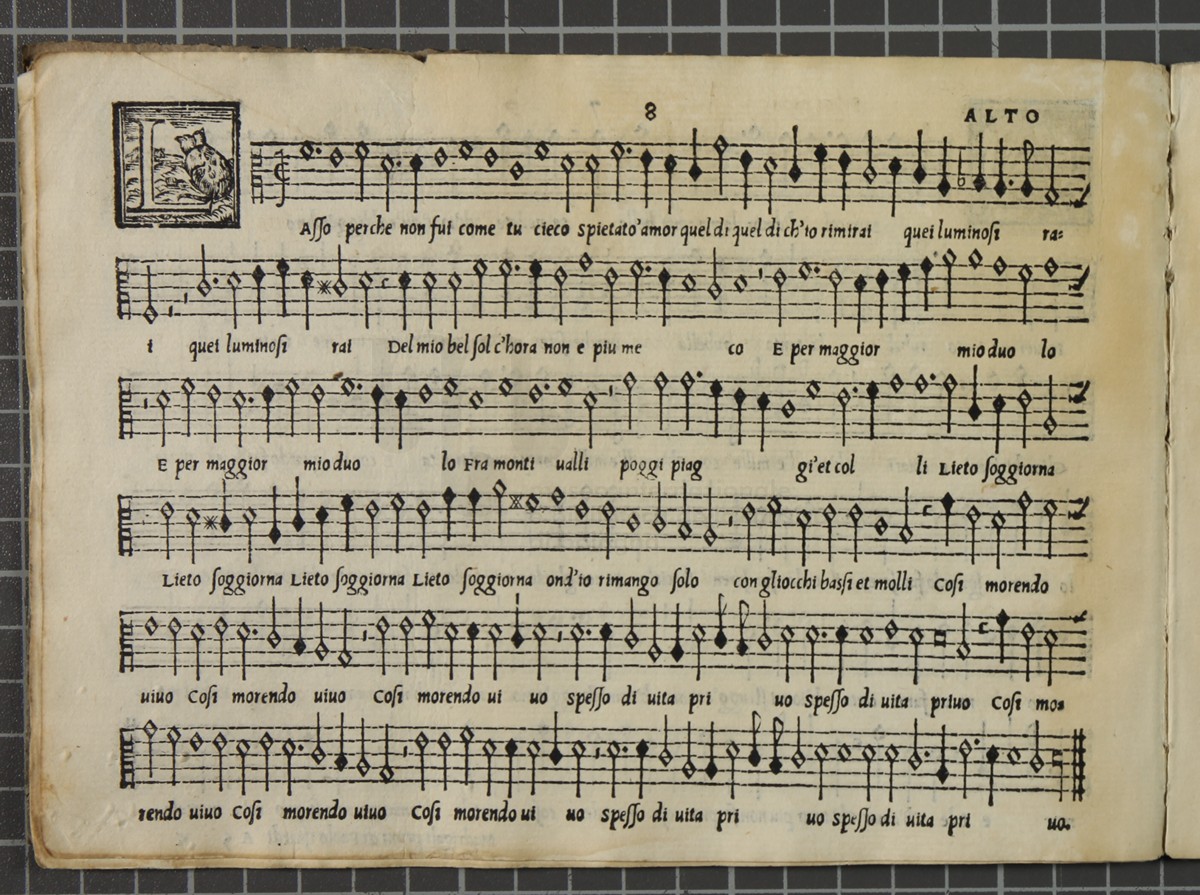 8
ALTO
LAſſo perche non fui come tu cieco spietato'amor quel di quel di ch'io rimirai quei luminoſi ra=
i quei luminoſi rai Del mio bel ſol c'hora non e piu me co E per maggior mio duo lo
E per maggior mio duo lo Fra monti ualli poggi piag gi'et col li Lieto ſoggiorna
Lieto ſoggiorna Lieto ſoggiorna Lieto ſoggiorna ond'io rimango ſolo con gliocchi baſſi et molli Coſi morendo
uiuo Coſi morendo uiuo Coſi morendo ui uo speſſo di uita pri uo speſſo di uita priuo Coſi mo=
rendo uiuo Coſi morendo uiuo Coſi morendo ui uo speſſo di uita pri uo speſſo di uita pri uo.